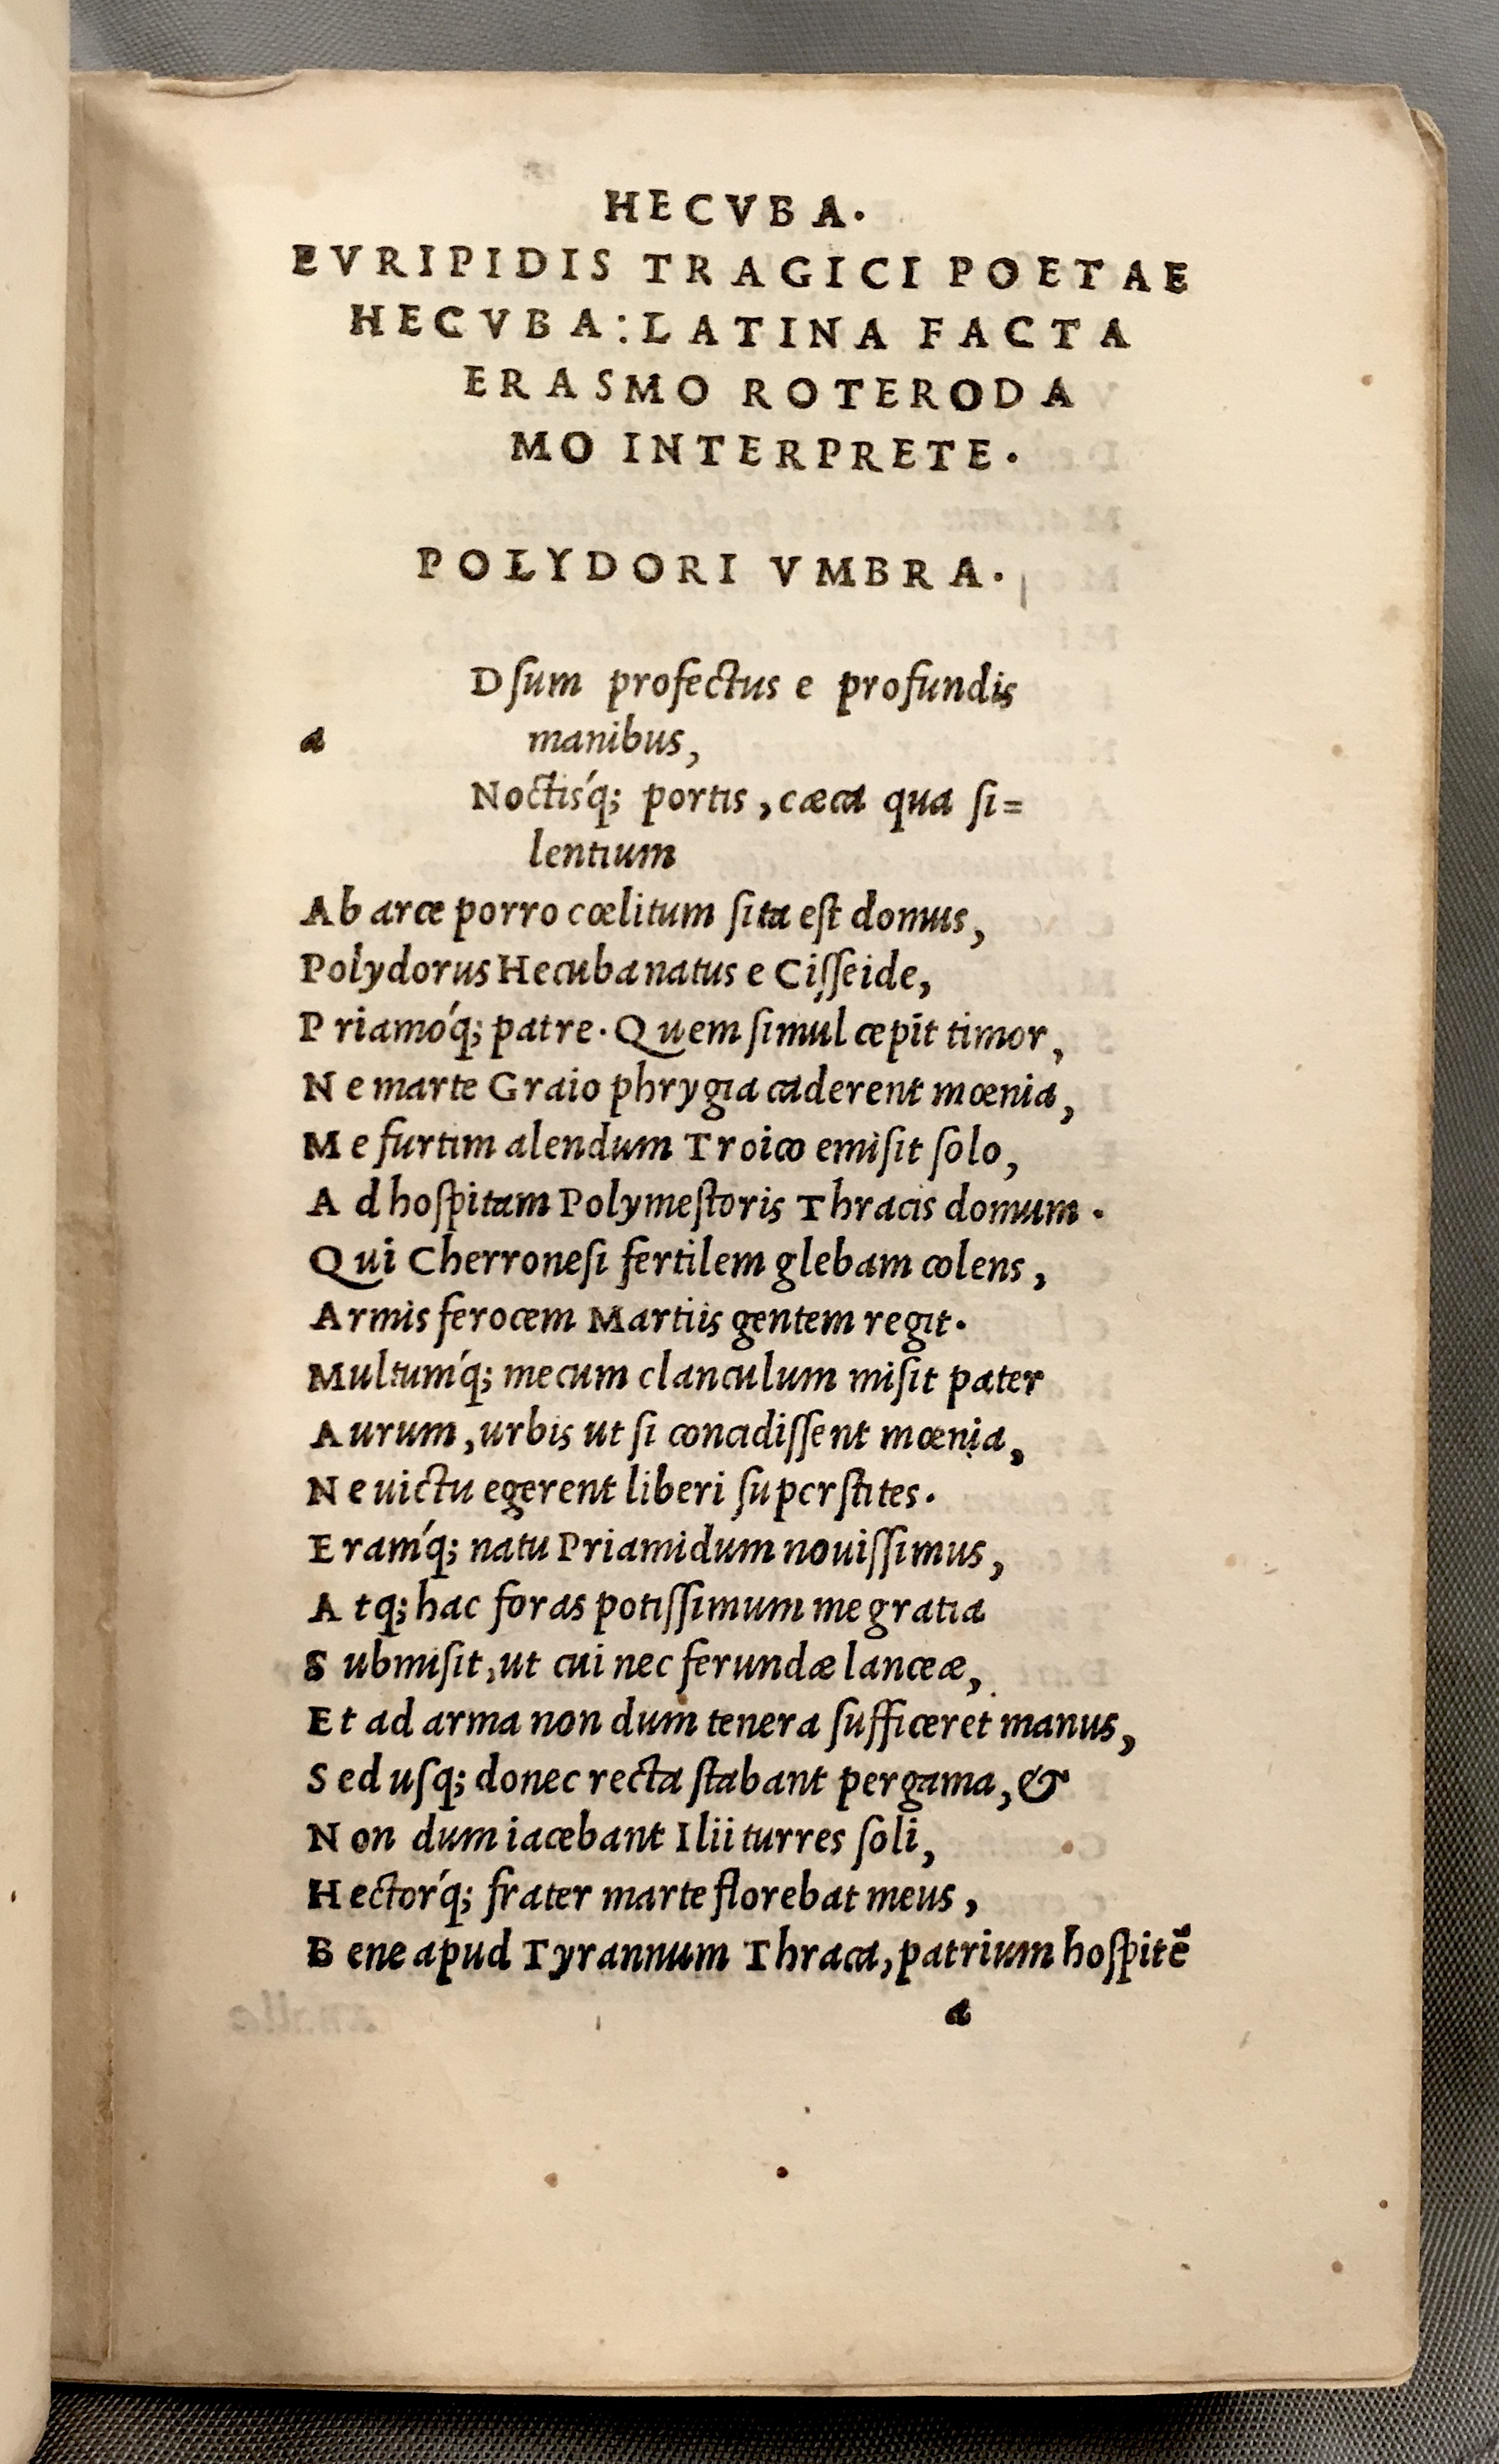 HECVBA.
EVRIPIDIS TRAGICI POETAE
HECVBA: LATINA FACTA
ERASMO ROTERODA
MO INTERPRETE.
POLYDORI VMBRA.
Dſum profectus e profundis
a manibus,
Noctis´q; portis, cæca qua ſi=
lentium
Ab arce porro cœlitum ſita eſt domus,
Polydorus Hecuba natus e Ciſſeide,
Priamo´q; patre. Quem ſimul cepit timor,
Ne marte Graio phrygia caderent mœnia,
Me furtim alendum Troico emiſit ſolo,
Ad hoſpitam Polymeſtoris Thracis domum.
Qui Cherroneſi fertilem glebam colens,
Armis ferocem Martiis gentem regit.
Multum´q; mecum clanculum miſit pater
Aurum, urbis ut ſi concidiſſent mœnia,
Ne uictu egerent liberi ſuperſtites.
Eram´q; natu Priamidum nouiſſimus,
Atq; hac foras potiſſimum me gratia
Submiſit, ut cui nec ferundæ lanceæ,
Et ad arma non dum tenera ſufficeret manus,
Sed uſq; donec recta ſtabant pergama, &
Non dum iacebant Ilii turres ſoli,
Hector´q; frater marte florebat meus,
Bene apud Tyrannum Thraca, patrium hoſpitē
a